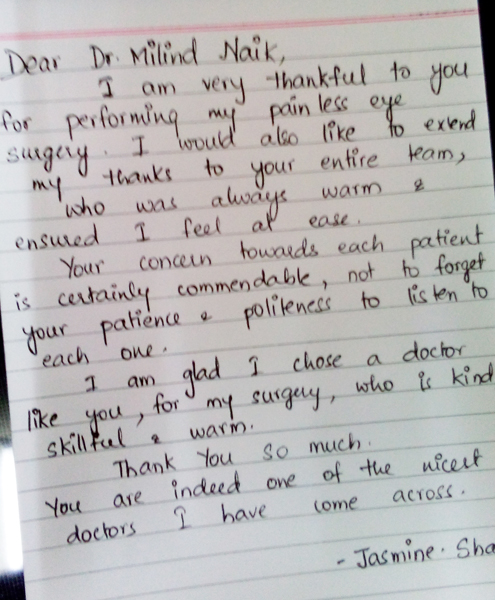 Dear Dr. Milind Naik,
I am very thankful to you
for performing my pain less eye
surgery. I would also like to extend
my thanks to your entire team,
who was always warm &
ensured I feel at ease.
Your concern towards each patient
is certainly commendable, not to forget
your patience & politeness to listen to
each one.
I am glad I chose a doctor
like you, for my surgery, who is kind
skillful & warm.
Thank You so much.
You are indeed one of the nicest
doctors I have come across.
- Jasmine. Sha